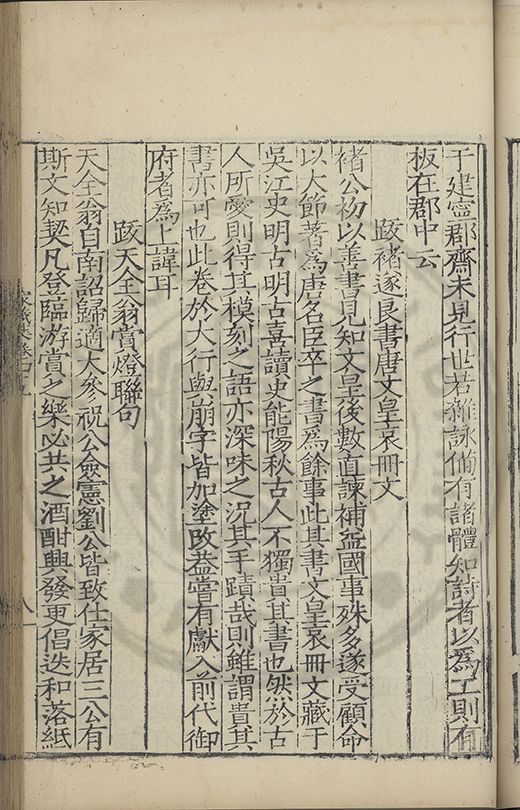 于建寧郡齋未見行世若雜詠備有諸體知詩者以爲工則有
板在郡中云
跋褚遂良書唐文皇哀冊文
褚公初以善書見知文皇後數直諫補益國事殊多遂受顧命
以大節著爲唐名臣卒之書爲餘事此其書文皇哀冊文藏于
吳江史明古明古喜讀史能陽秋古人不獨貴其書也然於古
人所愛則得其模刻之語亦深味之況其手蹟哉則雖謂貴其
書亦可也此卷於大行與崩字皆加塗改葢嘗有獻入前代御
府者爲上諱耳
跋天全翁賞燈聯句
天全翁自南詔歸適大參祝公僉憲劉公皆致仕家居三公有
斯文知契凡登臨游賞之樂必共之酒酣興發更倡迭和落紙
家藏集卷四十九
八